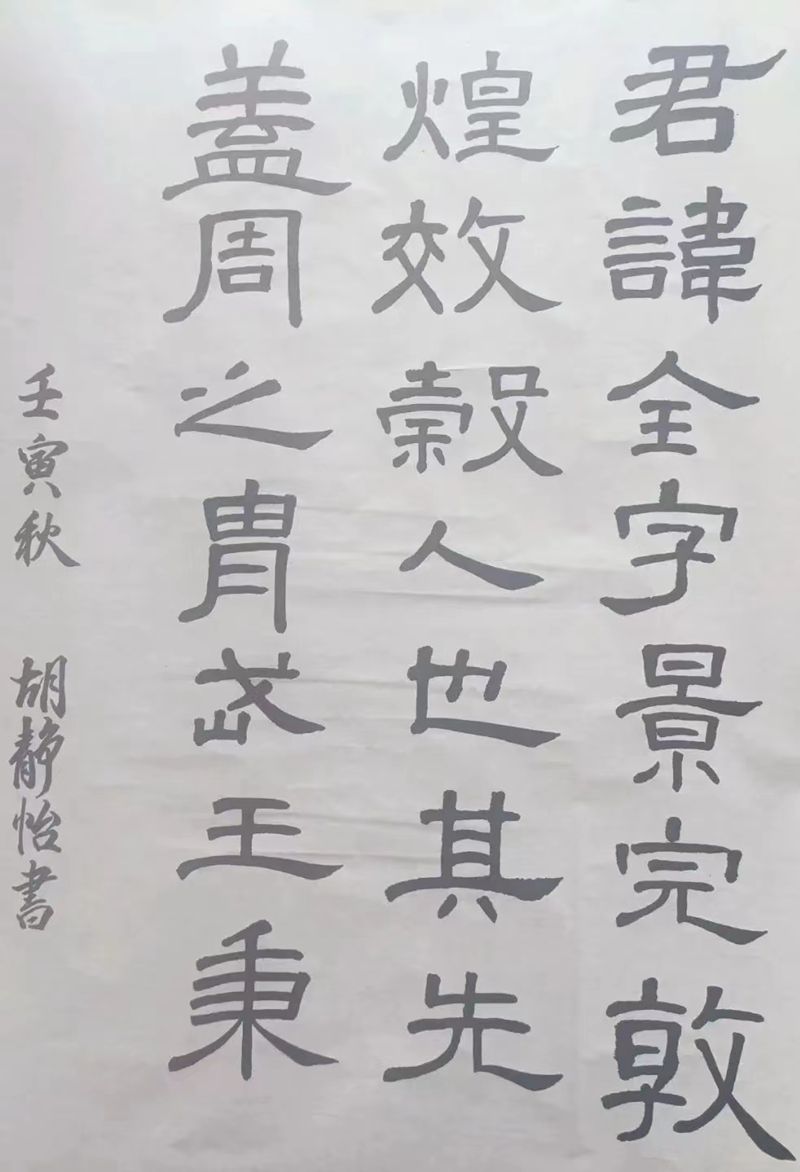 君諱全字景完敦
煌效穀人也其先
盖周之胄武王秉
壬寅秋 胡静怡書